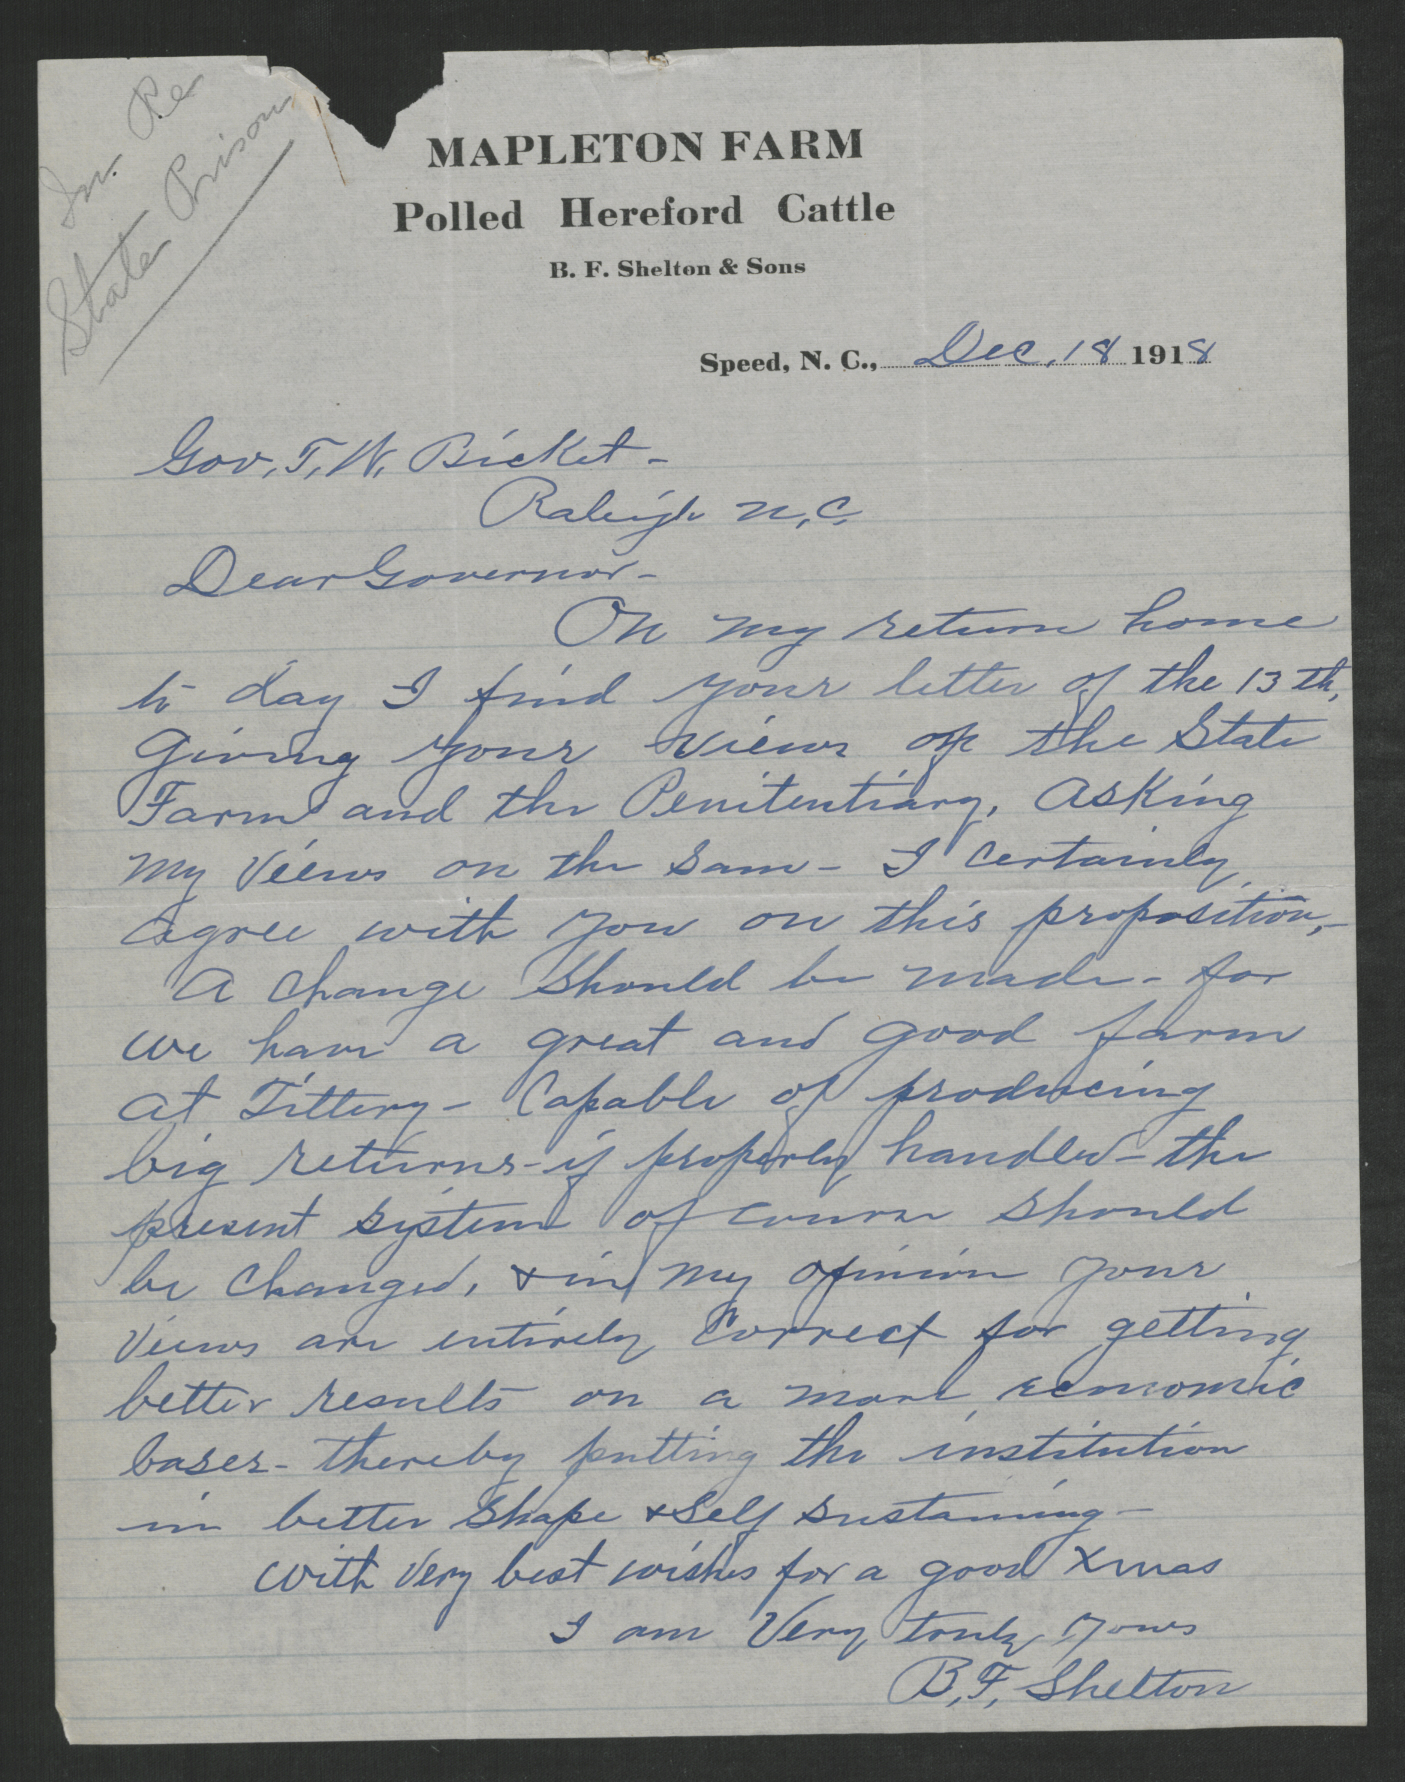 In Re
State Prison
MAPLETON FARM
Polled Hereford Cattle
B. F. Shelton & Sons
Speed, N. C., Dec. 18 1918
Gov. T. W. Bicket -
Raleigh N. C.
Dear Governor -
On my return home
to day I find your letter of the 13th,
Giving your views of the State
Farm and the Penitentiary, asking
my views on the same - I certainly
agree with you on this proposition, -
A change should be made - for
we have a great and good farm
at Tillery - Capable of producing
big returns - if properly handled - the
present system of course should
be changed, & in my opinion your
views are entirely correct for getting
better results on a more economic
bases - thereby putting the institution
in better shape & self sustaining -
with very best wishes for a good Xmas
I am Very truly yours
B. F. Shelton